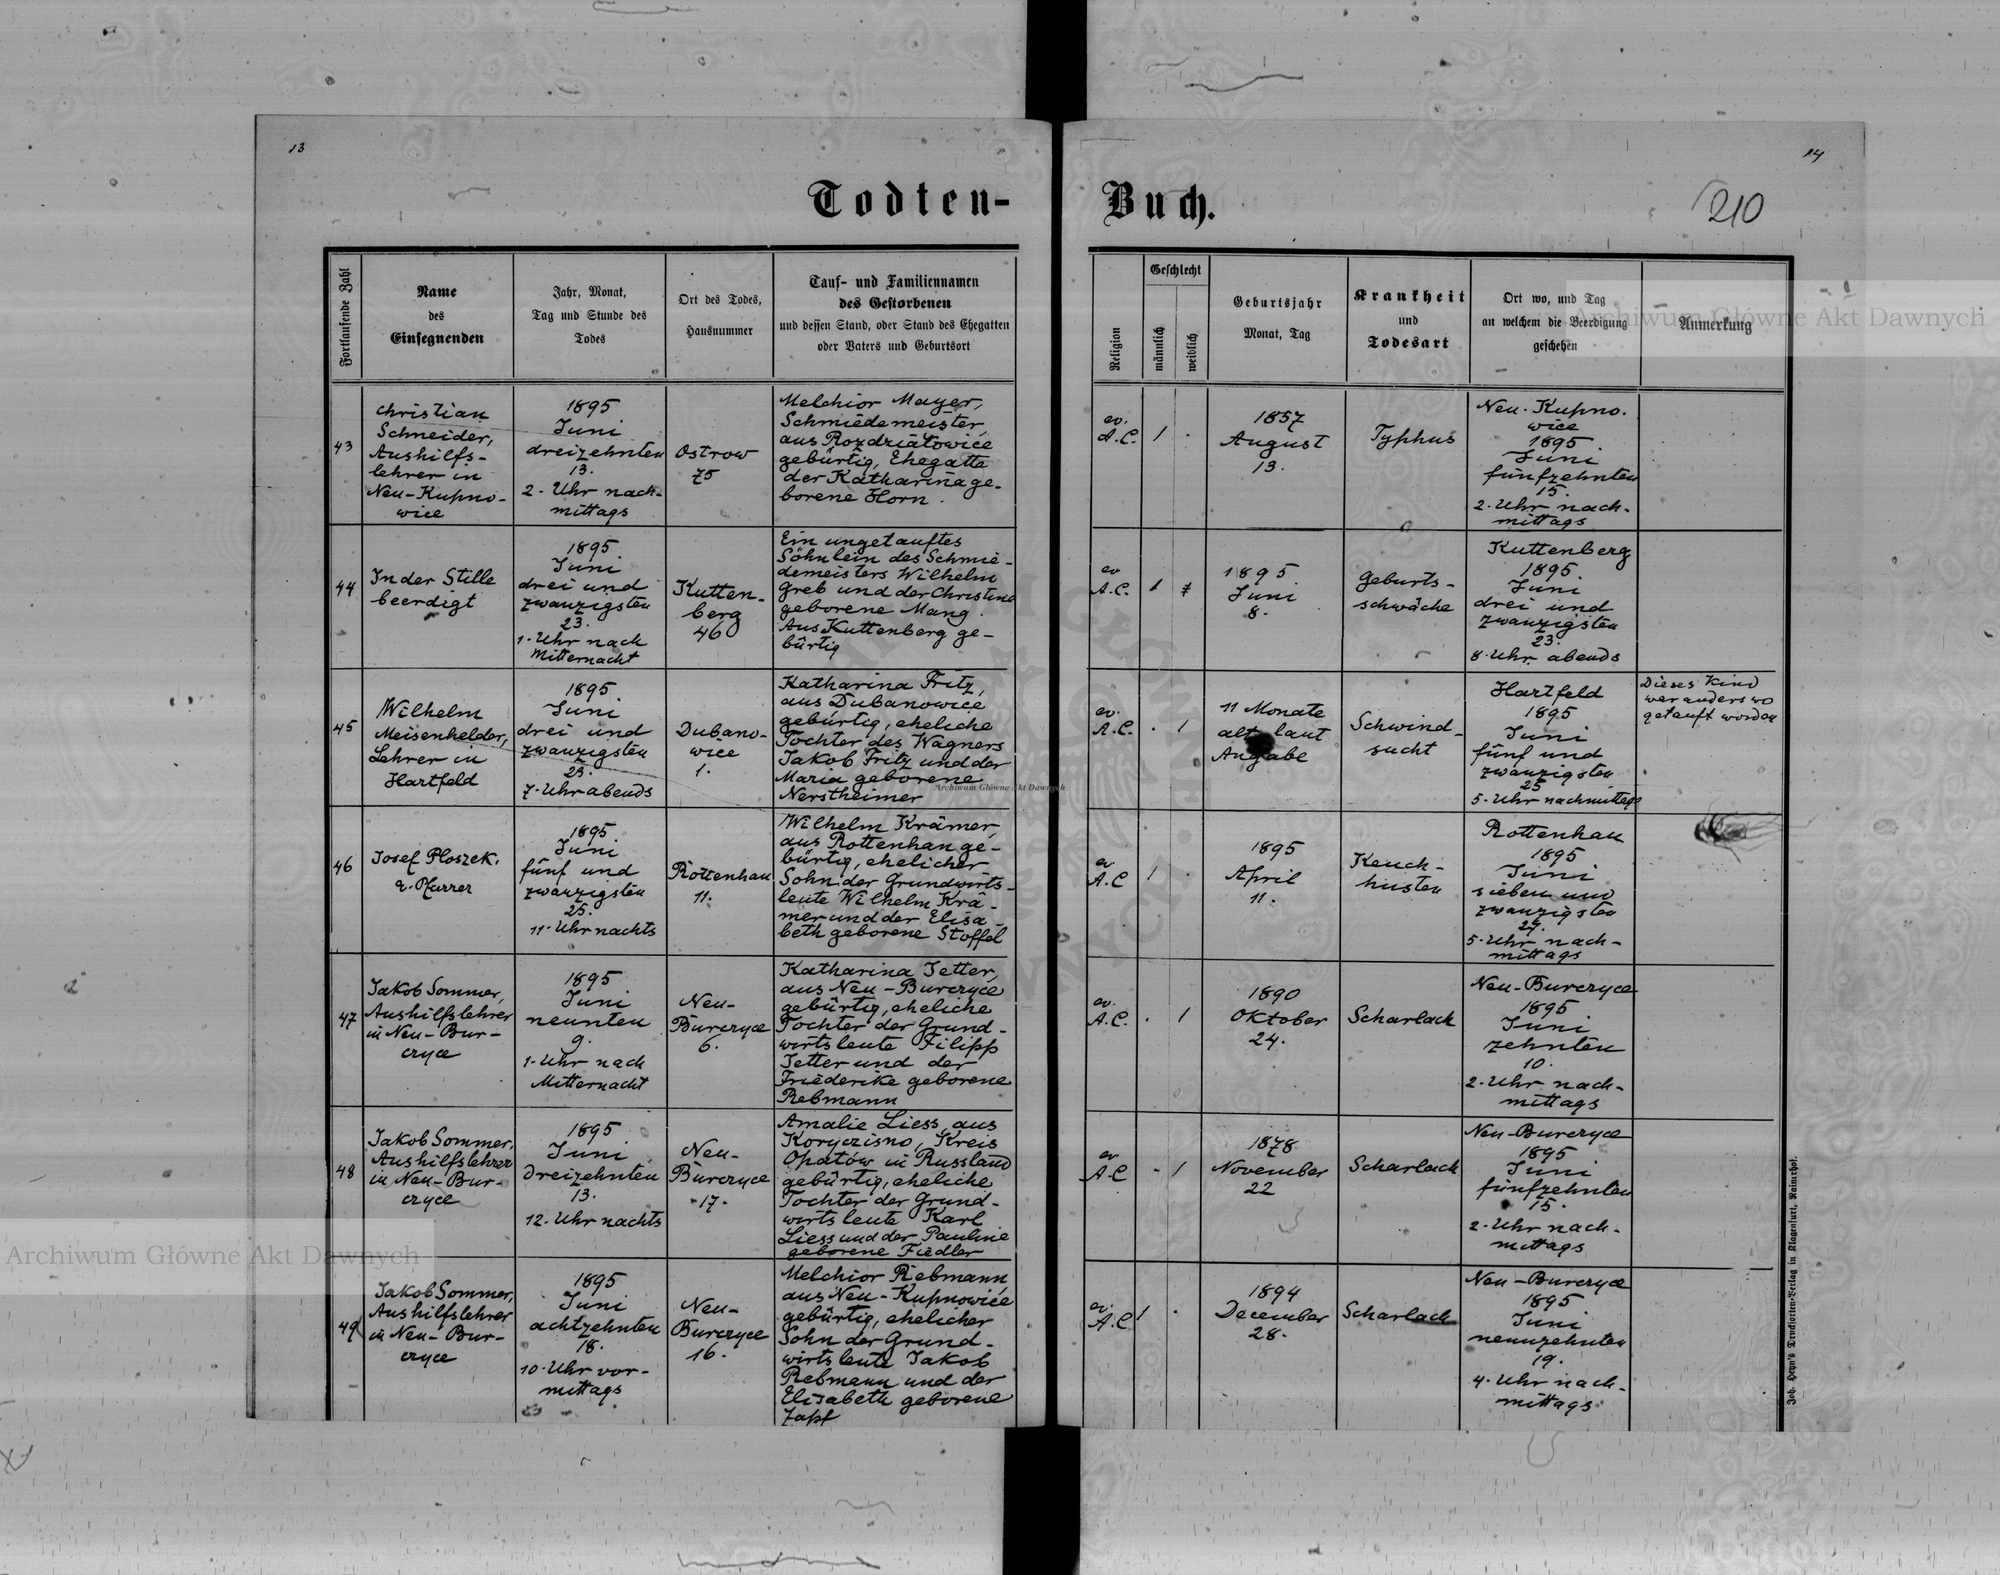 13
14
Todten-
Buch.
210
Fortlaufende Zahl
Name
des
Einsegnenden
Jahr, Monat,
Tag und Stunde des
Todes
Ort des Todes,
Hausnummer
Tauf- und Familiennamen
des Gestorbenen
und dessen Stand, oder Stand des Ehegatten
oder Vaters und Geburtsort
Religion
Geschlecht
männlich
weiblich
Geburtsjahr
Monat, Tag
Krankheit
und
Todesart
Ort wo, und Tag
an welchem die Beerdigung
geschehen
Anmerkung
43
Christian
Schneider,
Aushilfs-
lehrer in
Neu-Kupno-
wice
1895
Juni
dreizehnten
13.
2. Uhr nach-
mittags
Ostrow
75
Melchior Mayer,
Schmiedemeister,
aus Rozdziałowice
gebürtig, Ehegatte
der Katharina ge-
borene Horn.
ev.
A.C.
1
.
1857
August
13.
Typhus
Neu-Kupno-
wice
1895
Juni
fünfzehnten
15.
2. Uhr nach-
mittags
44
In der Stille
beerdigt
1895
Juni
drei und
zwanzigsten
23.
1. Uhr nach
Mitternacht
Kutten-
berg
46
Ein ungetauftes
Söhnlein des Schmie-
demeisters Wilhelm
Greb und der Christina
geborene Mang.
Aus Kuttenberg ge-
bürtig
ev
A.C.
1
1895
Juni
8.
Geburts-
schwäche
Kuttenberg
1895
Juni
drei und
zwanzigsten
23.
8. Uhr abends
45
Wilhelm
Meisenhelder,
Lehrer in
Hartfeld
1895
Juni
drei und
zwanzigsten
23.
7. Uhr abends
Dubano-
wice
1.
Katharina Fritz,
aus Dubanowice
gebürtig, eheliche
Tochter des Wagners
Jakob Fritz und der
Maria geborene
Nerstheimer
ev.
A.C.
.
1
11 Monate
alt laut
Angabe
Schwind-
sucht
Hartfeld
1895
Juni
fünf und
zwanzigsten
25
5. Uhr nachmittags
Dieses Kind
war anders wo
getauft worden
46
Josef Ploszek.
ev. Pfarrer
1895
Juni
fünf und
zwanzigsten
25.
11. Uhr nachts
Rottenhan
11.
Wilhelm Krämer,
aus Rottenhan ge-
bürtig, ehelicher
Sohn der Grundwirts-
leute Wilhelm Krä-
mer und der Elisa-
beth geborene Stoffel
ev
A.C
1
.
1895
April
11.
Keuch-
husten
Rottenhan
1895
Juni
sieben und
zwanzigsten
27.
5. Uhr nach-
mittags
47
Jakob Sommer,
Aushilfslehrer
in Neu-Bur-
czyce
1895
Juni
neunten
9.
1. Uhr nach
Mitternacht
Neu-
Burczyce
6.
Katharina Jetter,
aus Neu-Burczyce
gebürtig, eheliche
Tochter der Grund-
wirtsleute Filipp
Jetter und der
Friederike geborene
Rebmann
ev.
A.C.
.
1
1890
Oktober
24.
Scharlach
Neu-Burczyce
1895
Juni
zehnten
10.
2. Uhr nach-
mittags
48
Jakob Sommer,
Aushilfslehrer
in Neu-Bur-
czyce
1895
Juni
dreizehnten
13.
12. Uhr nachts
Neu-
Burczyce
17.
Amalie Liess, aus
Koryczisno, Kreis
Opatów in Russland
gebürtig, eheliche
Tochter der Grund-
wirtsleute Karl
Liess und der Pauline
geborene Fiedler
ev
A.C
-
1
1878
November
22
Scharlach
Neu-Burczyce
1895
Juni
fünfzehnten
15.
2. Uhr nach-
mittags
49
Jakob Sommer,
Aushilfslehrer
in Neu-Bur-
czyce
1895
Juni
achtzehnten
18.
10. Uhr vor-
mittags
Neu-
Burczyce
16.
Melchior Rebmann
aus Neu-Kupnowice
gebürtig, ehelicher
Sohn der Grund-
wirtsleute Jakob
Rebmann und der
Elisabeth geborene
Zapf
ev.
A.C
1
.
1894
December
28.
Scharlach
Neu-Burczyce
1895
Juni
neunzehnten
19.
4. Uhr nach-
mittags
Joh. Heyn's Drucksorten-Verlag in Klagenfurt, Rainerhof.
Archiwum Główne Akt Dawnych
Archiwum Główne Akt Dawnych
Archiwum Główne Akt Dawnych